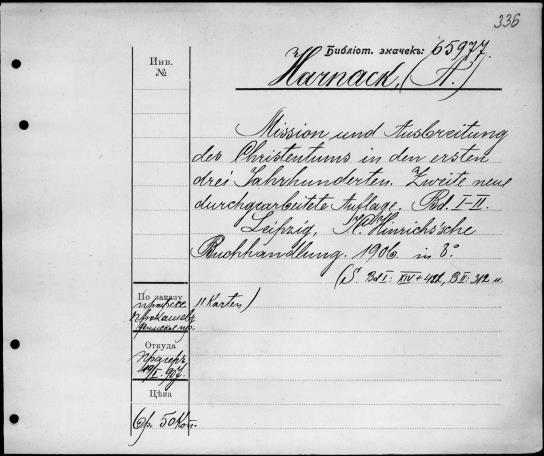 336
Библіот. значекъ: 65977.
Инв.
№
Harnack, (A.)
Mission und Ausbreitung
des Christentums in den ersten
drei Jahrhunderten. Zweite neu
durchgearbeitete Auflage. Bd. I-II.
Leipzig, Hinrichs'sche
Buchhandlung. 1906. in 8°
(S. Bd I: XIV+421, B II: 312 u.
11 Karten)
По заказу
Откуда
907.
Цѣна
6 р. 50 коп.